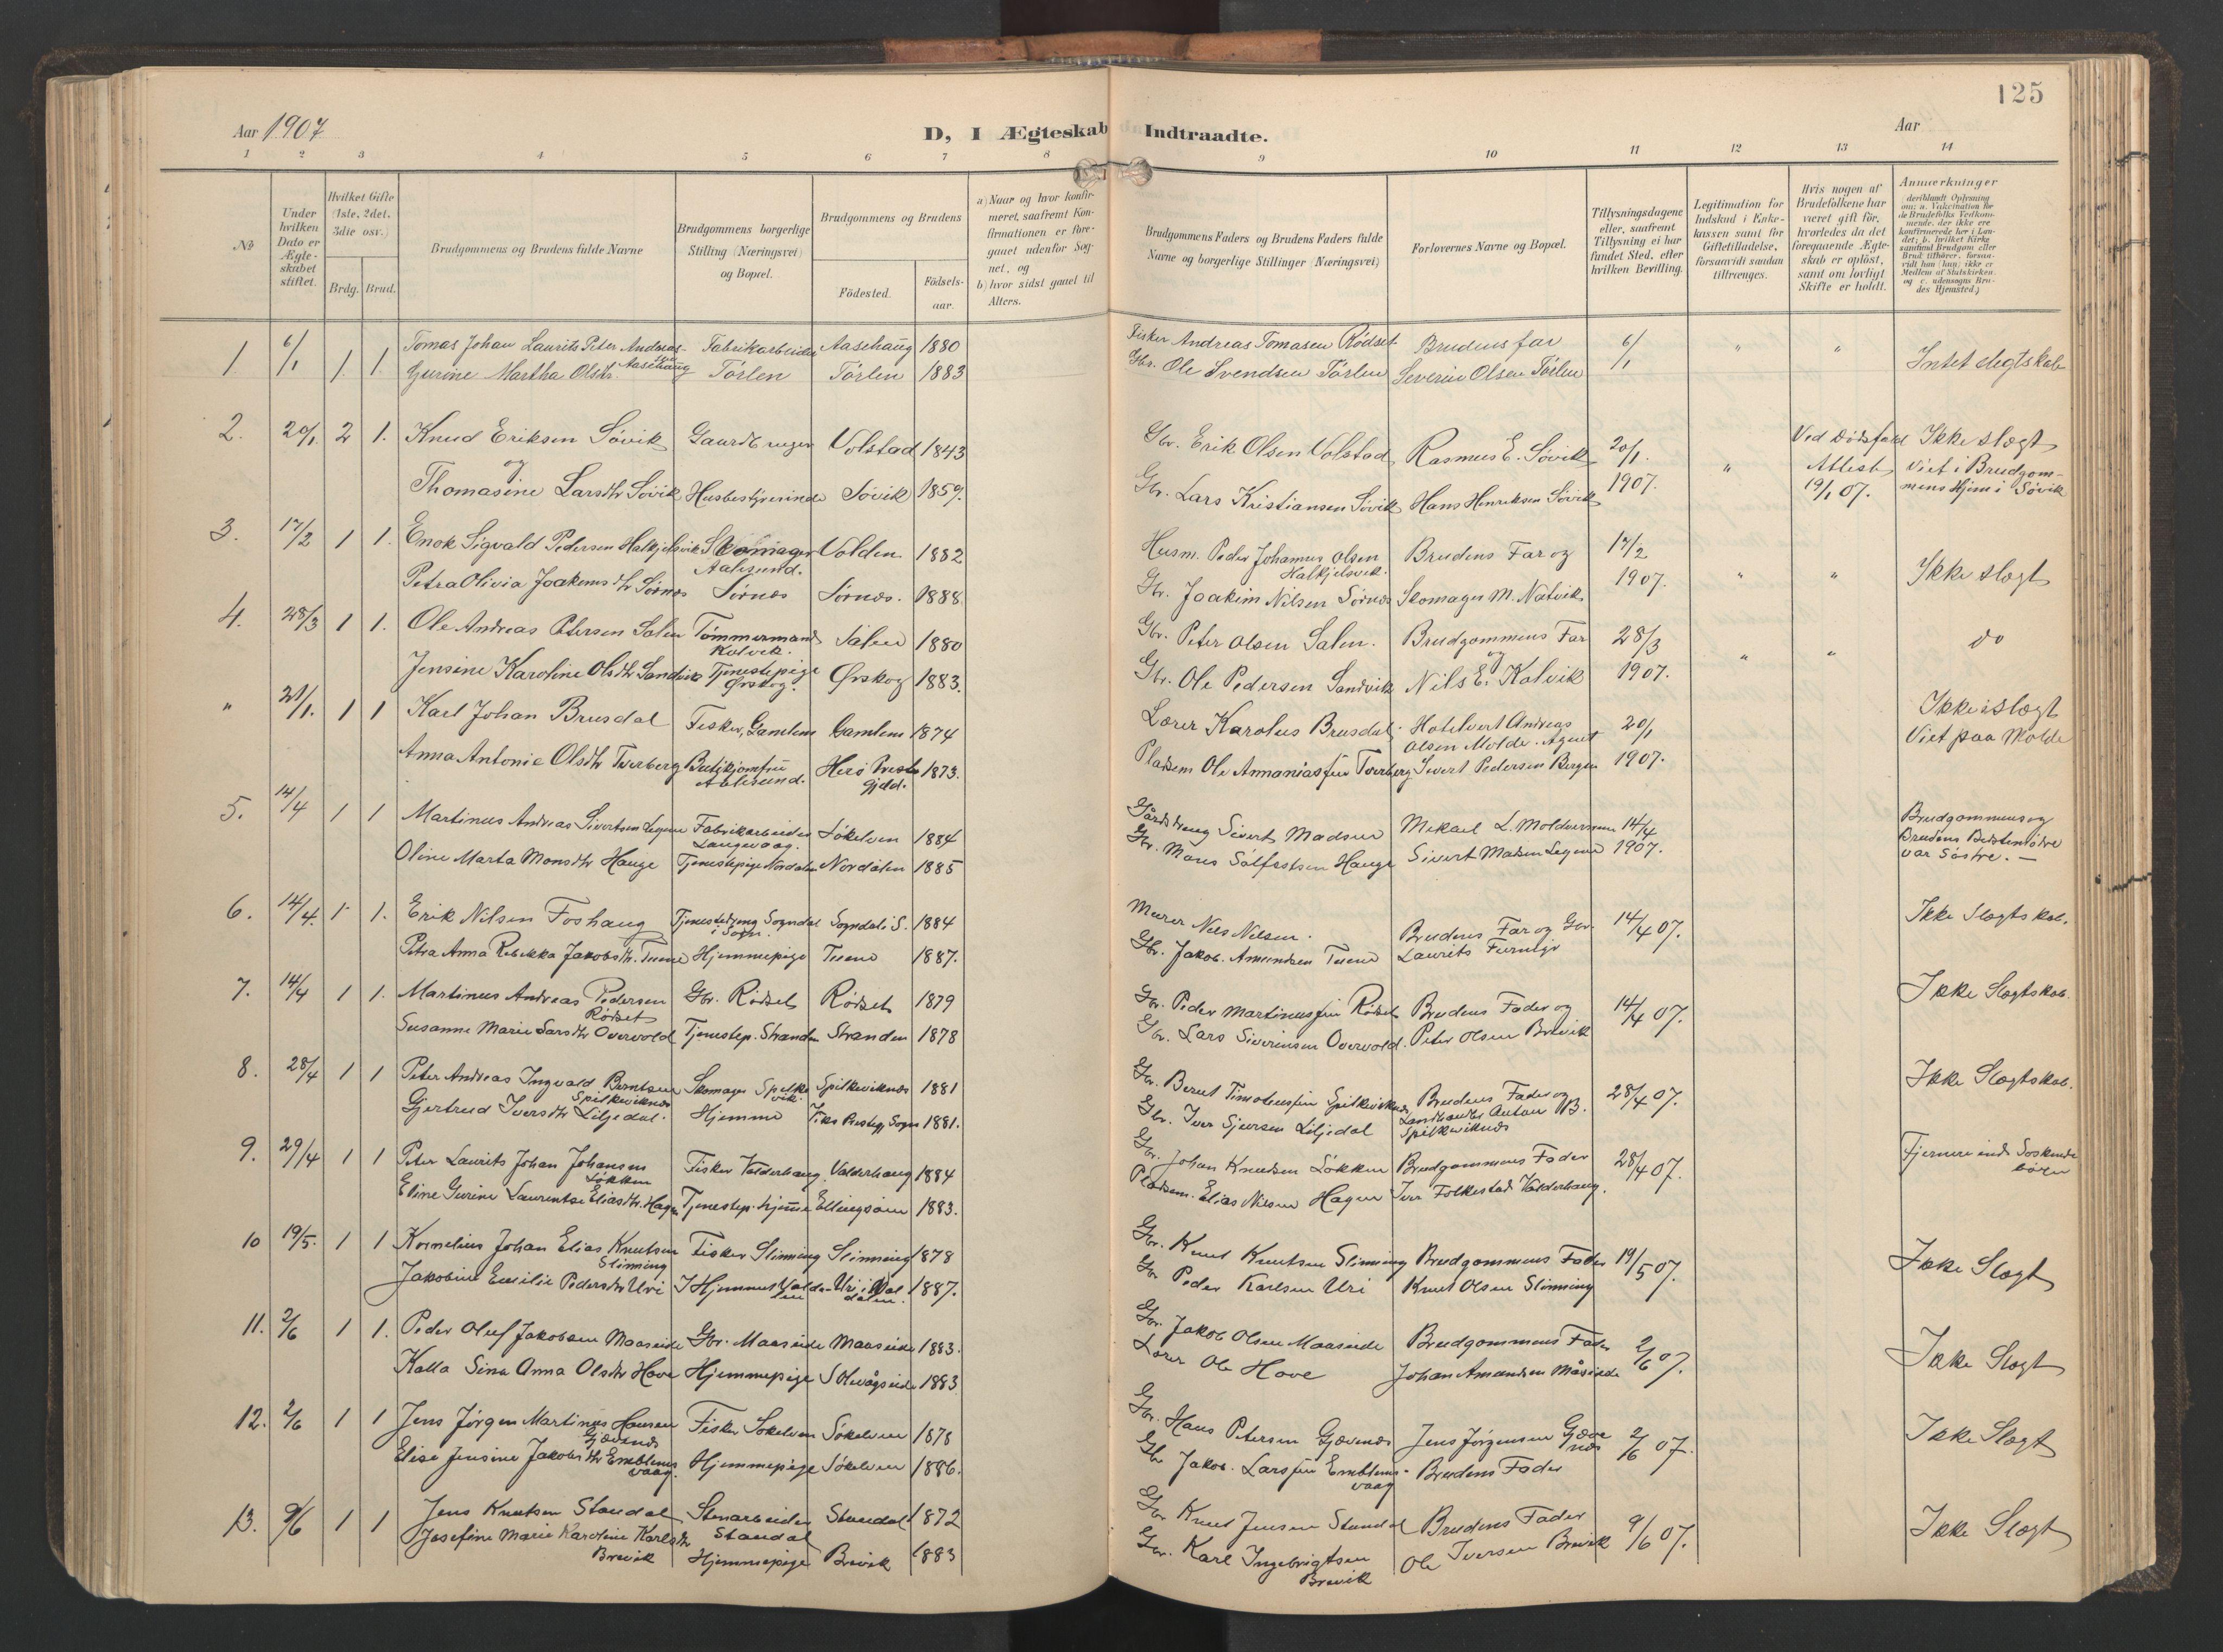 125
Aar 1907
D, I Ægteskab Indtraadte.
Aar
1 2 3 4 5 6 7 8 9 10 11 12 13 14
No
Under hvilken Dato er Ægteskabet stiftet.
Hvilket Gifte (1ste, 2det, 3die osv.)
Brdg. Brud.
Brudgommens og Brudens fulde Navne
Brudgommens borgerlige Stilling (Næringsvei) og Bopæl.
Brudgommens og Brudens
Födested.
Födselsaar.
a) Naar og hvor konfirmeret, saafremt Konfirmationen er foregaaet udenfor Sognet, og
b) hvor sidst gaaet til Alters.
Brudgommens Faders og Brudens Faders fulde Navne og borgerlige Stillinger (Næringsvei)
Forlovernes Navne og Bopæl.
Tillysningsdagene eller, saafremt Tillysning ei har fundet Sted, efter hvilken Bevilling.
Legitimation for Indskud i Enkekassen samt for Giftetilladelse, forsaavidt saadan tiltrænges.
Hvis nogen af Brudefolkene har været gift för, hvorledes da det foregaaende Ægteskab er oplöst, samt om lovligt Skifte er holdt.
Anmærkninger
1 6/1 1 1 Tomas Johan Laurits Peter Andreassen Aasehaug Fabrikarbeider Aasehaug 1880 Fisker Andreas Tomasen Rødset Brudens far 6/1 " " Intet slegtskab
Gurine Martha Olsdtr. Tørlen Tørlen 1883 Gbr. Ole Svendsen Tørlen Severin Olsen Tørlen
2. 20/1 2 1. Knud Eriksen Søvik Gaardbruger Volstad 1843 Gbr. Erik Olsen Volstad Rasmus E. Søvik 20/1 1907. " Ved Dødsfald Attest 19/1 07. Ikke slegt Viet i Brudgommens Hjem i Søvik
og
Thomasine Larsdtr Søvik Husbestyrerinde Søvik 1859. Gbr. Lars Kristiansen Søvik Hans Henriksen Søvik
3. 17/2 1 1. Enok Sigvald Pedersen Halkjelsvik Skomager Aalesund. Volden 1882 Husm. Peder Johannes Olsen Halkjelsvik. Brudens Far og 17/2 1907. " " Ikke slegt
Petra Olivia Joakimsdtr Sørnes Sørnes Sørnes. 1888 Gbr. Joakim Nilsen Sørnes Skomager M. Natvik
4. 28/3 1 1. Ole Andreas Petersen Salen Tømmermand Kolvik. Salen 1880 Gbr. Peter Olsen Salen. Brudgommens Far og 28/3 1907. " " do
Jensine Karoline Olsdtr Sandvik Tjenestepige Ørskog. Ørskog 1883. Gbr. Ole Pedersen Sandvik Nils E. Kolvik
" 21/1. 1 1 Karl Johan Brusdal Fisker, Gamlem Gamlem 1874 Lærer Karolus Brusdal. Hotelvert Andreas Olsen Molde. Agent 20/1 1907. Ikke i Slegt Viet paa Molde
Anna Antonie Olsdtr Tverberg Butikjomfru Aalesund. Herø Prestegjeld. 1873. Pladsem Ole Annaniassen Tverberg Sivert Pedersen Bergen
5. 14/4 1 1 Martinus Andreas Sivertsen Fabrikarbeider Langevaag. Søkelven 1884 Gårddreng Sivert Madsen Mikael L. Moldversmyr 14/4 1907. Brudgommens og Brudens Bedstemødre var Søstre. —
Oline Marta Monsdtr Hauge Tjenestepige Nordalen Nordalen 1885 Gbr. Mons Sølfestsen Hauge Sivert Madsen
6. 14/4. 1 1. Erik Nilsen Foshaug Tjenestedreng Sogndal i Sogn. Sogndal i S. 1884 Murer Nils Nilsen. Brudens Far og Gbr. 14/4 07. Ikke Slegtskab.
Petra Anna Rebekka Jakobsdtr. Tuene Hjemmepige Tuene 1887. Gbr. Jakob. Amundsen Tuene Laurits
7. 14/4 1 1. Martinus Andreas Pedersen Rødset Gbr. Rødset Rødset 1879 Gbr. Peder Martinussen Rødset Brudens Fader og 14/4 07. Ikke Slegtskab.
Susanne Marie Larsdtr Overvold Tjenestep. Stranden Stranden 1878 Gbr. Lars Siverinsen Overvold. Peter Olsen Brevik
8. 28/4 1 1 Peter Andreas Ingvald Berntsen Spilkeviknes Skomager Spelkevik. Spilkeviknes 1881 Gbr. Bernt Timoteussen Spilkeviknes, Brudens Fader og 28/4 07. Ikke Slegtskab.
Gjertrud Iversdtr Liljedal. Hjemme 1881. Gbr. Iver Sjursen Liljedal Landhandler Anton B. Spilkeviknes
9. 29/4 1 1 Peter Laurits Johan Johansen Løkken Fisker Valderhaug. Valderhaug 1884 Gbr. Johan Knudsen Løkken Brudgommens Fader 28/4 07. Fjernere end Søskendebørn
Eline Gurine Laurentse Eliasdtr. Hagen Tjenestep. hjemme Ellingsøen 1883. Pladsem. Elias Nilsen Hagen Iver Folkestad Valderhaug.
10 19/5. 1 1 Kornelius Johan Elias Knutsen Slinning Fisker Slinning Slinning 1878 Gbr. Knut Knutsen Slinning Brudgommens Fader 19/5 07. Ikke Slegt
Jakobine Emilie Pedersdtr Uri I Hjemmet Valdalen Uri i Valdalen. 1887. Gbr Peder Karlsen Uri Knut Olsen Slinning
11. 2/6 1 1. Peder Oluf Jakobsen Maaseide Gbr. Maaseide Maaseide 1883. Gbr. Jakob Olsen Maaseide Brudgommens Fader 2/6 07. Ikke Slegt
Kalla Sina Anna Olsdtr Hove Hjemmepige Solevågseide 1883. Lærer Ole Hove Johan Amundsen Måseide
12. 2/6 1 1 Jens Jørgen Martinus Hansen Gjævenes Fisker Søkelven Søkelven 1878 Gbr. Hans Petersen Gjævenes Jens Jørgensen Gjævenes 2/6 07. Ikke Slegt
Elise Jensine Jakobsdtr Emblemsvaag. Hjemmepige Søkelven 1886. Gbr Jakob. Larssen Emblemsvaag Brudens Fader
13. 9/6 1 1 Jens Knutsen Standal Stenarbeider Standal Standal 1872 Gbr Knut Jensen Standal Brudens Fader 9/6 07. Ikke Slegt
Josefine Marie Karoline Karlsdtr Brevik Hjemmepige Brevik 1883 Gbr. Karl Ingebrigtsen Brevik Ole Iversen Brevik